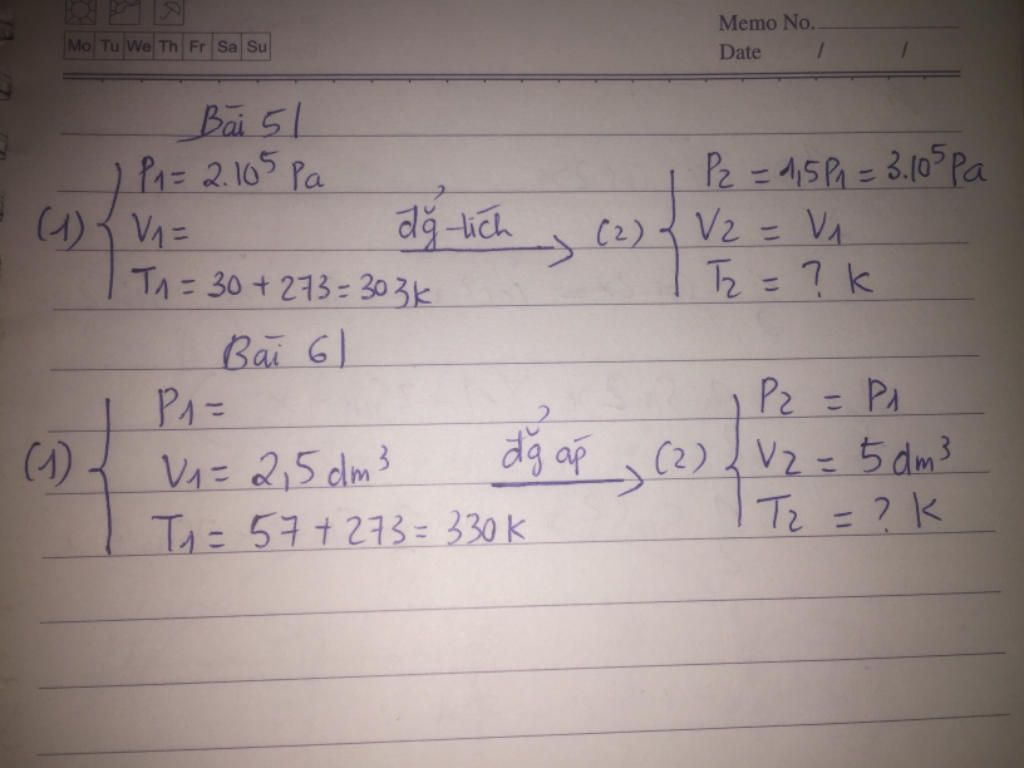 Memo No.
Mo Tu We Th Fr Sa Su
Date / /
Bài 5|
(1) P1 = 2.10⁵ Pa
V1 =
T1 = 30 + 273 = 303k
đẳg tích
(2) P2 = 1,5P1 = 3.10⁵ Pa
V2 = V1
T2 = ? k
Bài 6|
(1) P1 =
V1 = 2,5 dm³
T1 = 57 + 273 = 330k
đẳg áp
(2) P2 = P1
V2 = 5 dm³
T2 = ? k